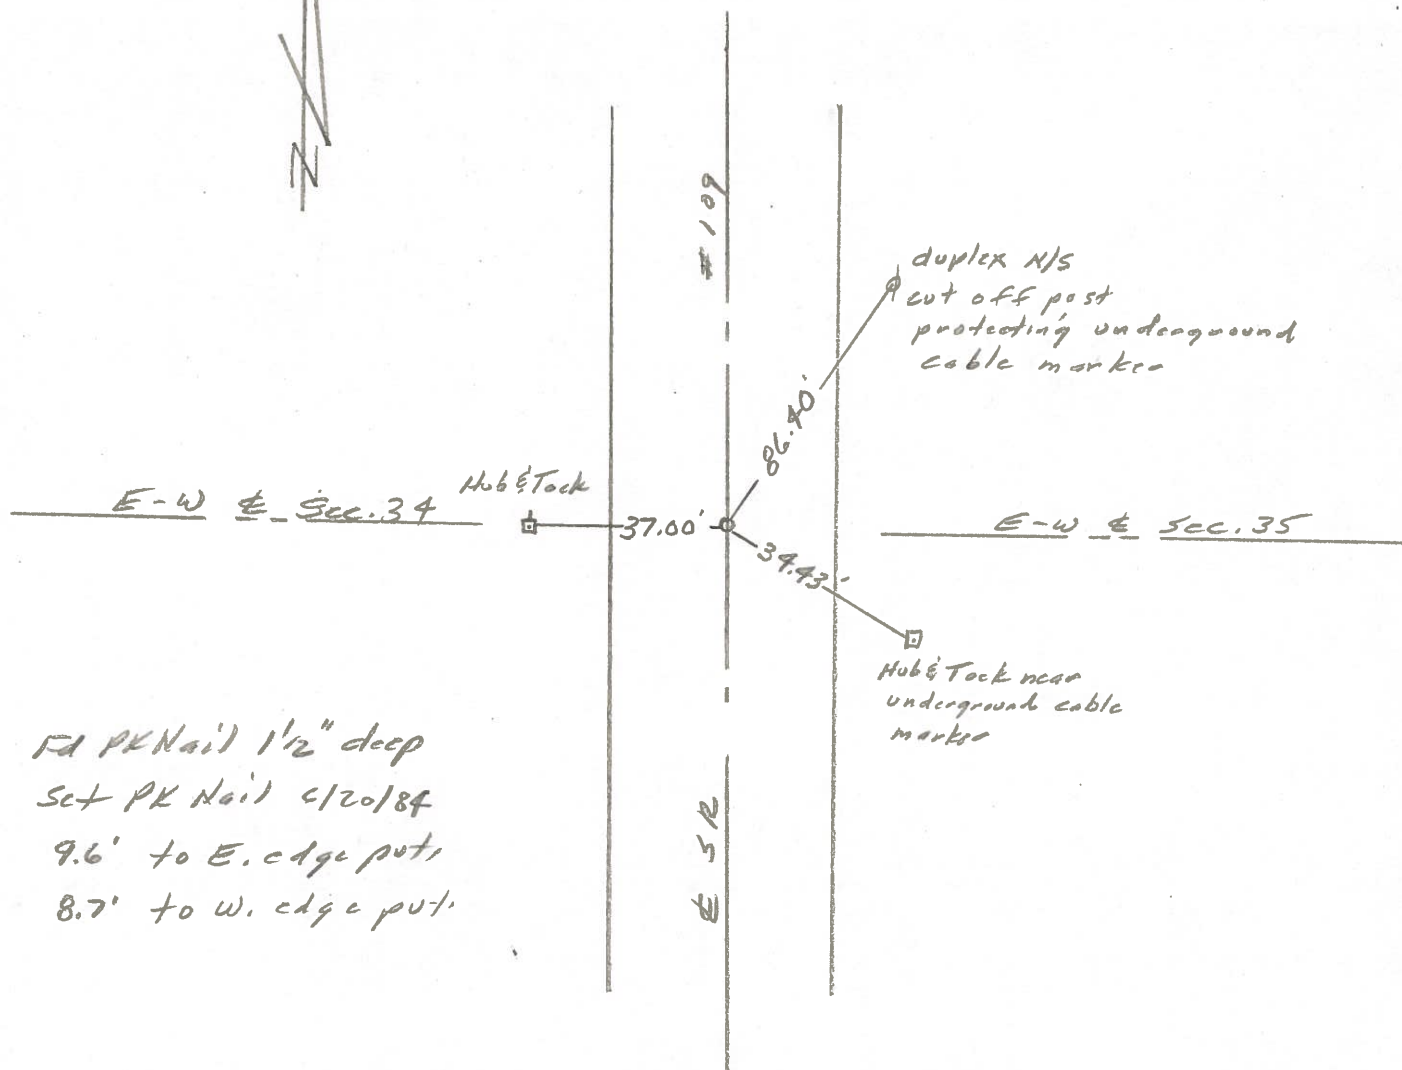 N
# 109
duplex N/S
cut off post
protecting underground
cable marker
86.40'
Hub & Tack
E-W ℄ Sec. 34
37.00'
E-W ℄ Sec. 35
34.43'
Hub & Tack near
underground cable
marker
Fd PK Nail 1 1/2" deep
Set PK Nail 6/20/84
9.6' to E. edge pvt.
8.7' to W. edge pvt.
℄ SR